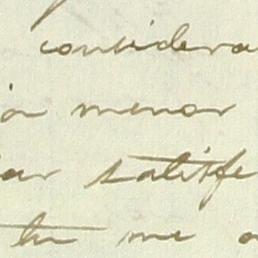 considera
ia menor
ar satisfe
tu me a